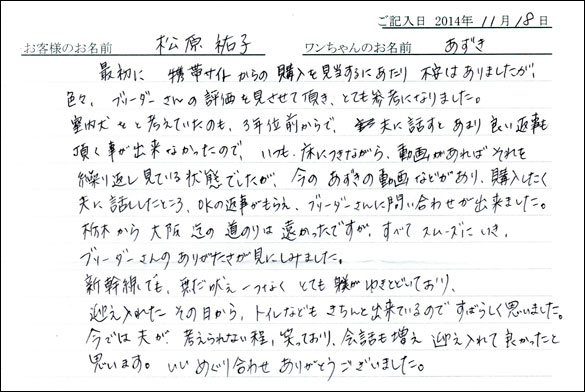 ご記入日 2014年 11月 18日
お客様のお名前 松原 祐子 ワンちゃんのお名前 あずき
最初に 携帯サイトからの購入を見当するにあたり 不安はありましたが、
色々、ブリーダーさんの評価を見させて頂き、とても参考になりました。
室内犬をと考えていたのも、3年位前からで、夫に話すとあまり良い返事も
頂く事が出来なかったので、いつも、床につきながら、動画があればそれを
繰り返し見ている状態でしたが、今のあずきの動画などがあり、購入したく
夫に話ししたところ、OKの返事がもらえ、ブリーダーさんに問い合わせが出来ました。
栃木から 大阪迄の道のりは遠かったですが、すべて スムーズにいき、
ブリーダーさんのありがたさが身にしみました。
新幹線でも、無だ吠え一つなく とても躾がゆきとどいており、
迎え入れた その日から、トイレなども きちんと出来ているのですばらしく思いました。
今では夫が 考えられない程、笑っており、会話も増え 迎え入れて良かったと
思います。いい めぐり合わせ ありがとうございました。